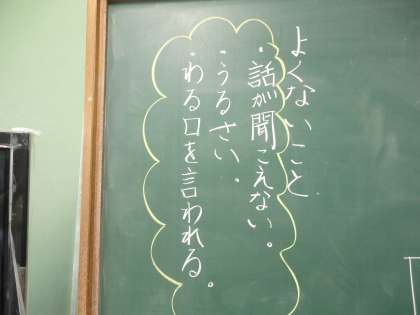 よくないこと
・話が聞こえない。
・うるさい。
・わる口を言われる。